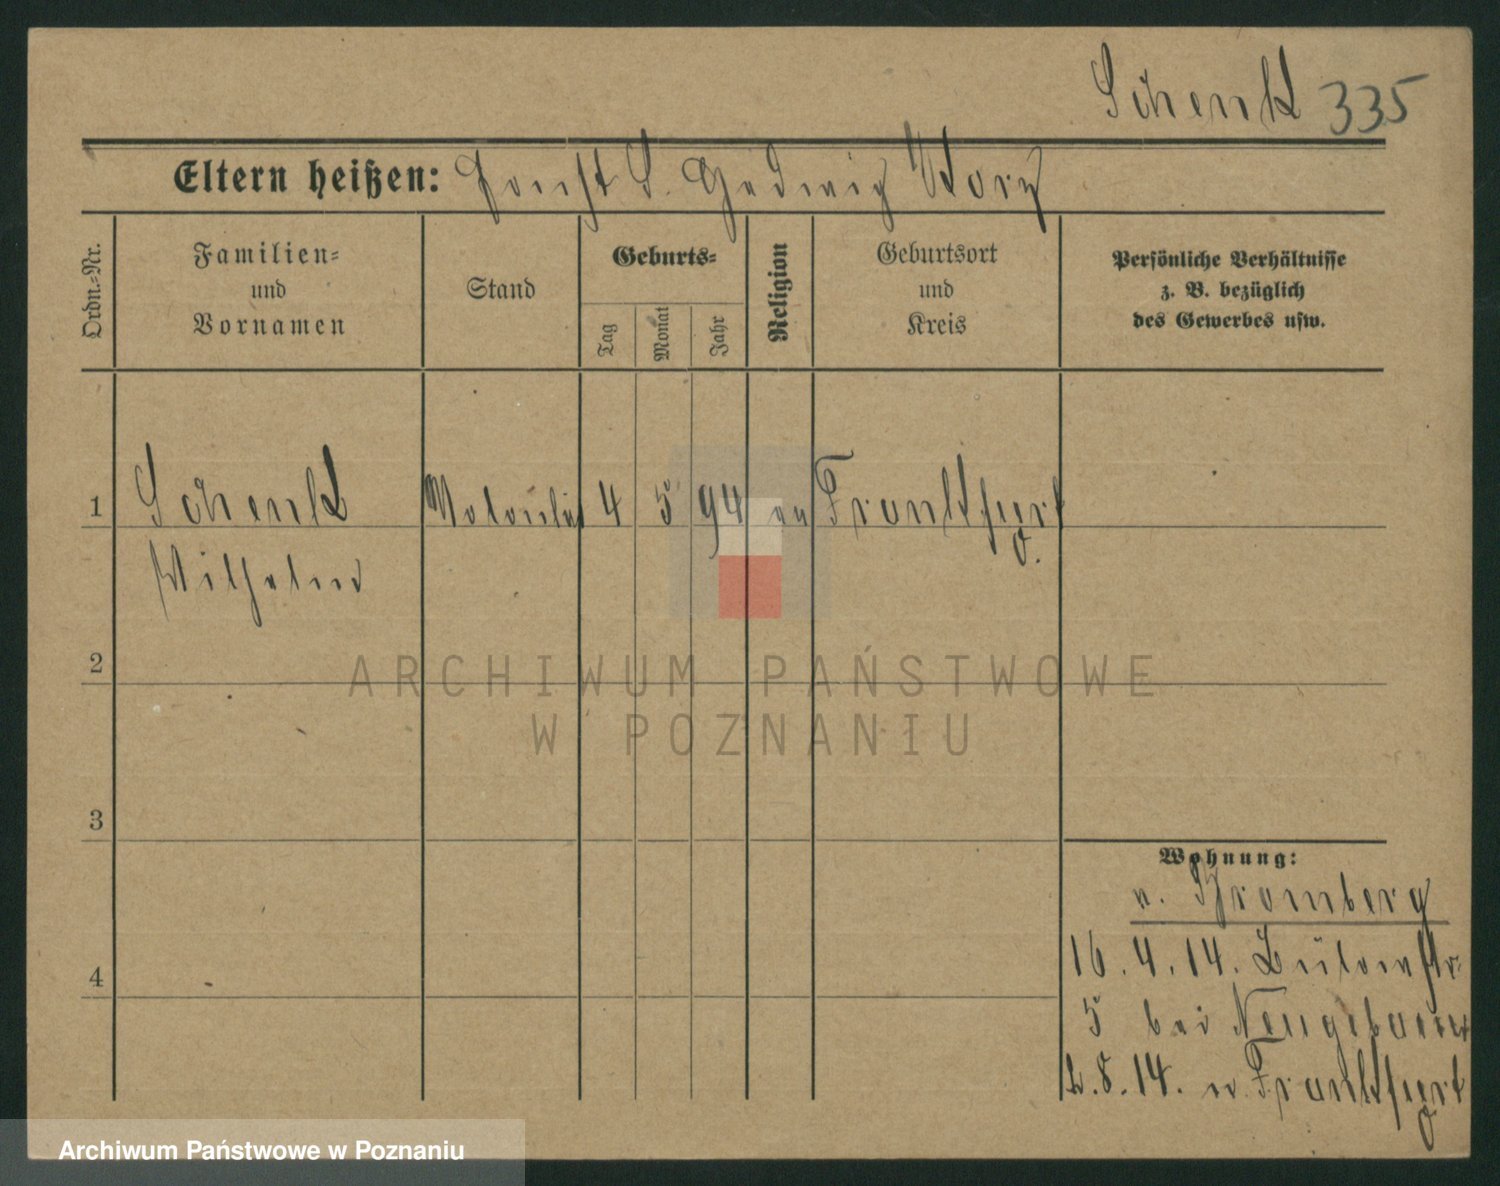 Schenk 335
Eltern heißen: Hedwig
Ordn.-Nr.
Familien-
und
Vornamen
Stand
Geburts-
Tag
Monat
Jahr
Religion
Geburtsort
und
Kreis
Persönliche Verhältnisse
z. B. bezüglich
des Gewerbes usw.
1 Schenk 4 5 94 ev Frankfurt
O.
Wilhelm
2
3
4
Wohnung:
v. Bromberg
16.4.14. Bülowstr.
5 bei Neugebauer
2.8.14. n. Frankfurt
O
ARCHIWUM PAŃSTWOWE
W POZNANIU
Archiwum Państwowe w Poznaniu